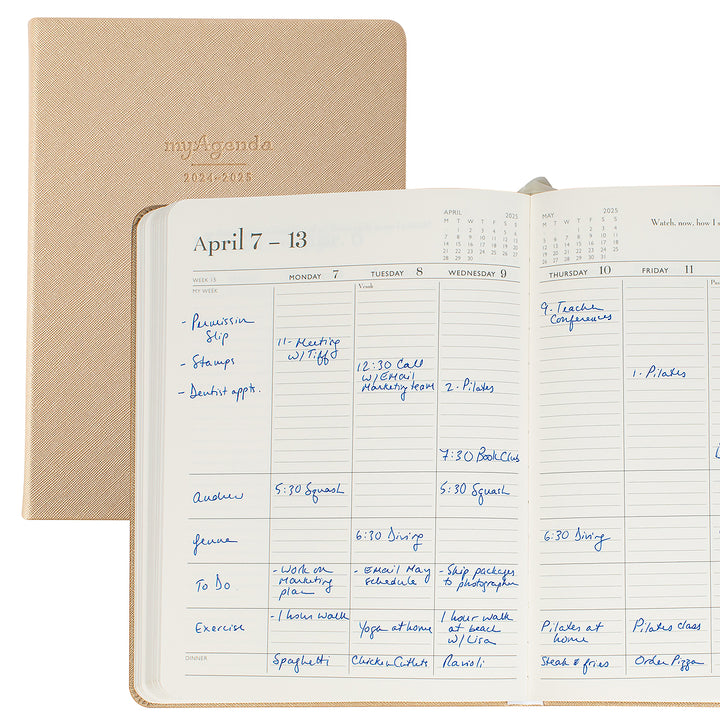 myAgenda
2024-2025
April 7 – 13
APRIL 2025
M T W T F S S
1 2 3 4 5 6
7 8 9 10 11 12 13
14 15 16 17 18 19 20
21 22 23 24 25 26 27
28 29 30
MAY 2025
M T W T F S S
1 2 3 4
5 6 7 8 9 10 11
12 13 14 15 16 17 18
19 20 21 22 23 24 25
26 27 28 29 30 31
Watch, now, how I s
WEEK 15
MONDAY 7
TUESDAY 8
WEDNESDAY 9
THURSDAY 10
FRIDAY 11
MY WEEK
- Permission
Slip
- Stamps
- Dentist appts.
11- Meeting
w/ Tiff
12:30 Call
w/ EMail
Marketing team
2- Pilates
7:30 Book Club
9- Teacher
Conferences
1- Pilates
Andrew
5:30 Squash
5:30 Squash
Jenna
6:30 Diving
6:30 Diving
To Do
- Work on
Marketing
plan
- EMail May
schedule
- Ship packages
to photographer
Exercise
- 1 hour walk
Yoga at home
1 hour walk
at beach
w/ Lisa
Pilates at
home
Pilates class
DINNER
Spaghetti
Chicken Cutlets
Ravioli
Steak & fries
Order Pizza